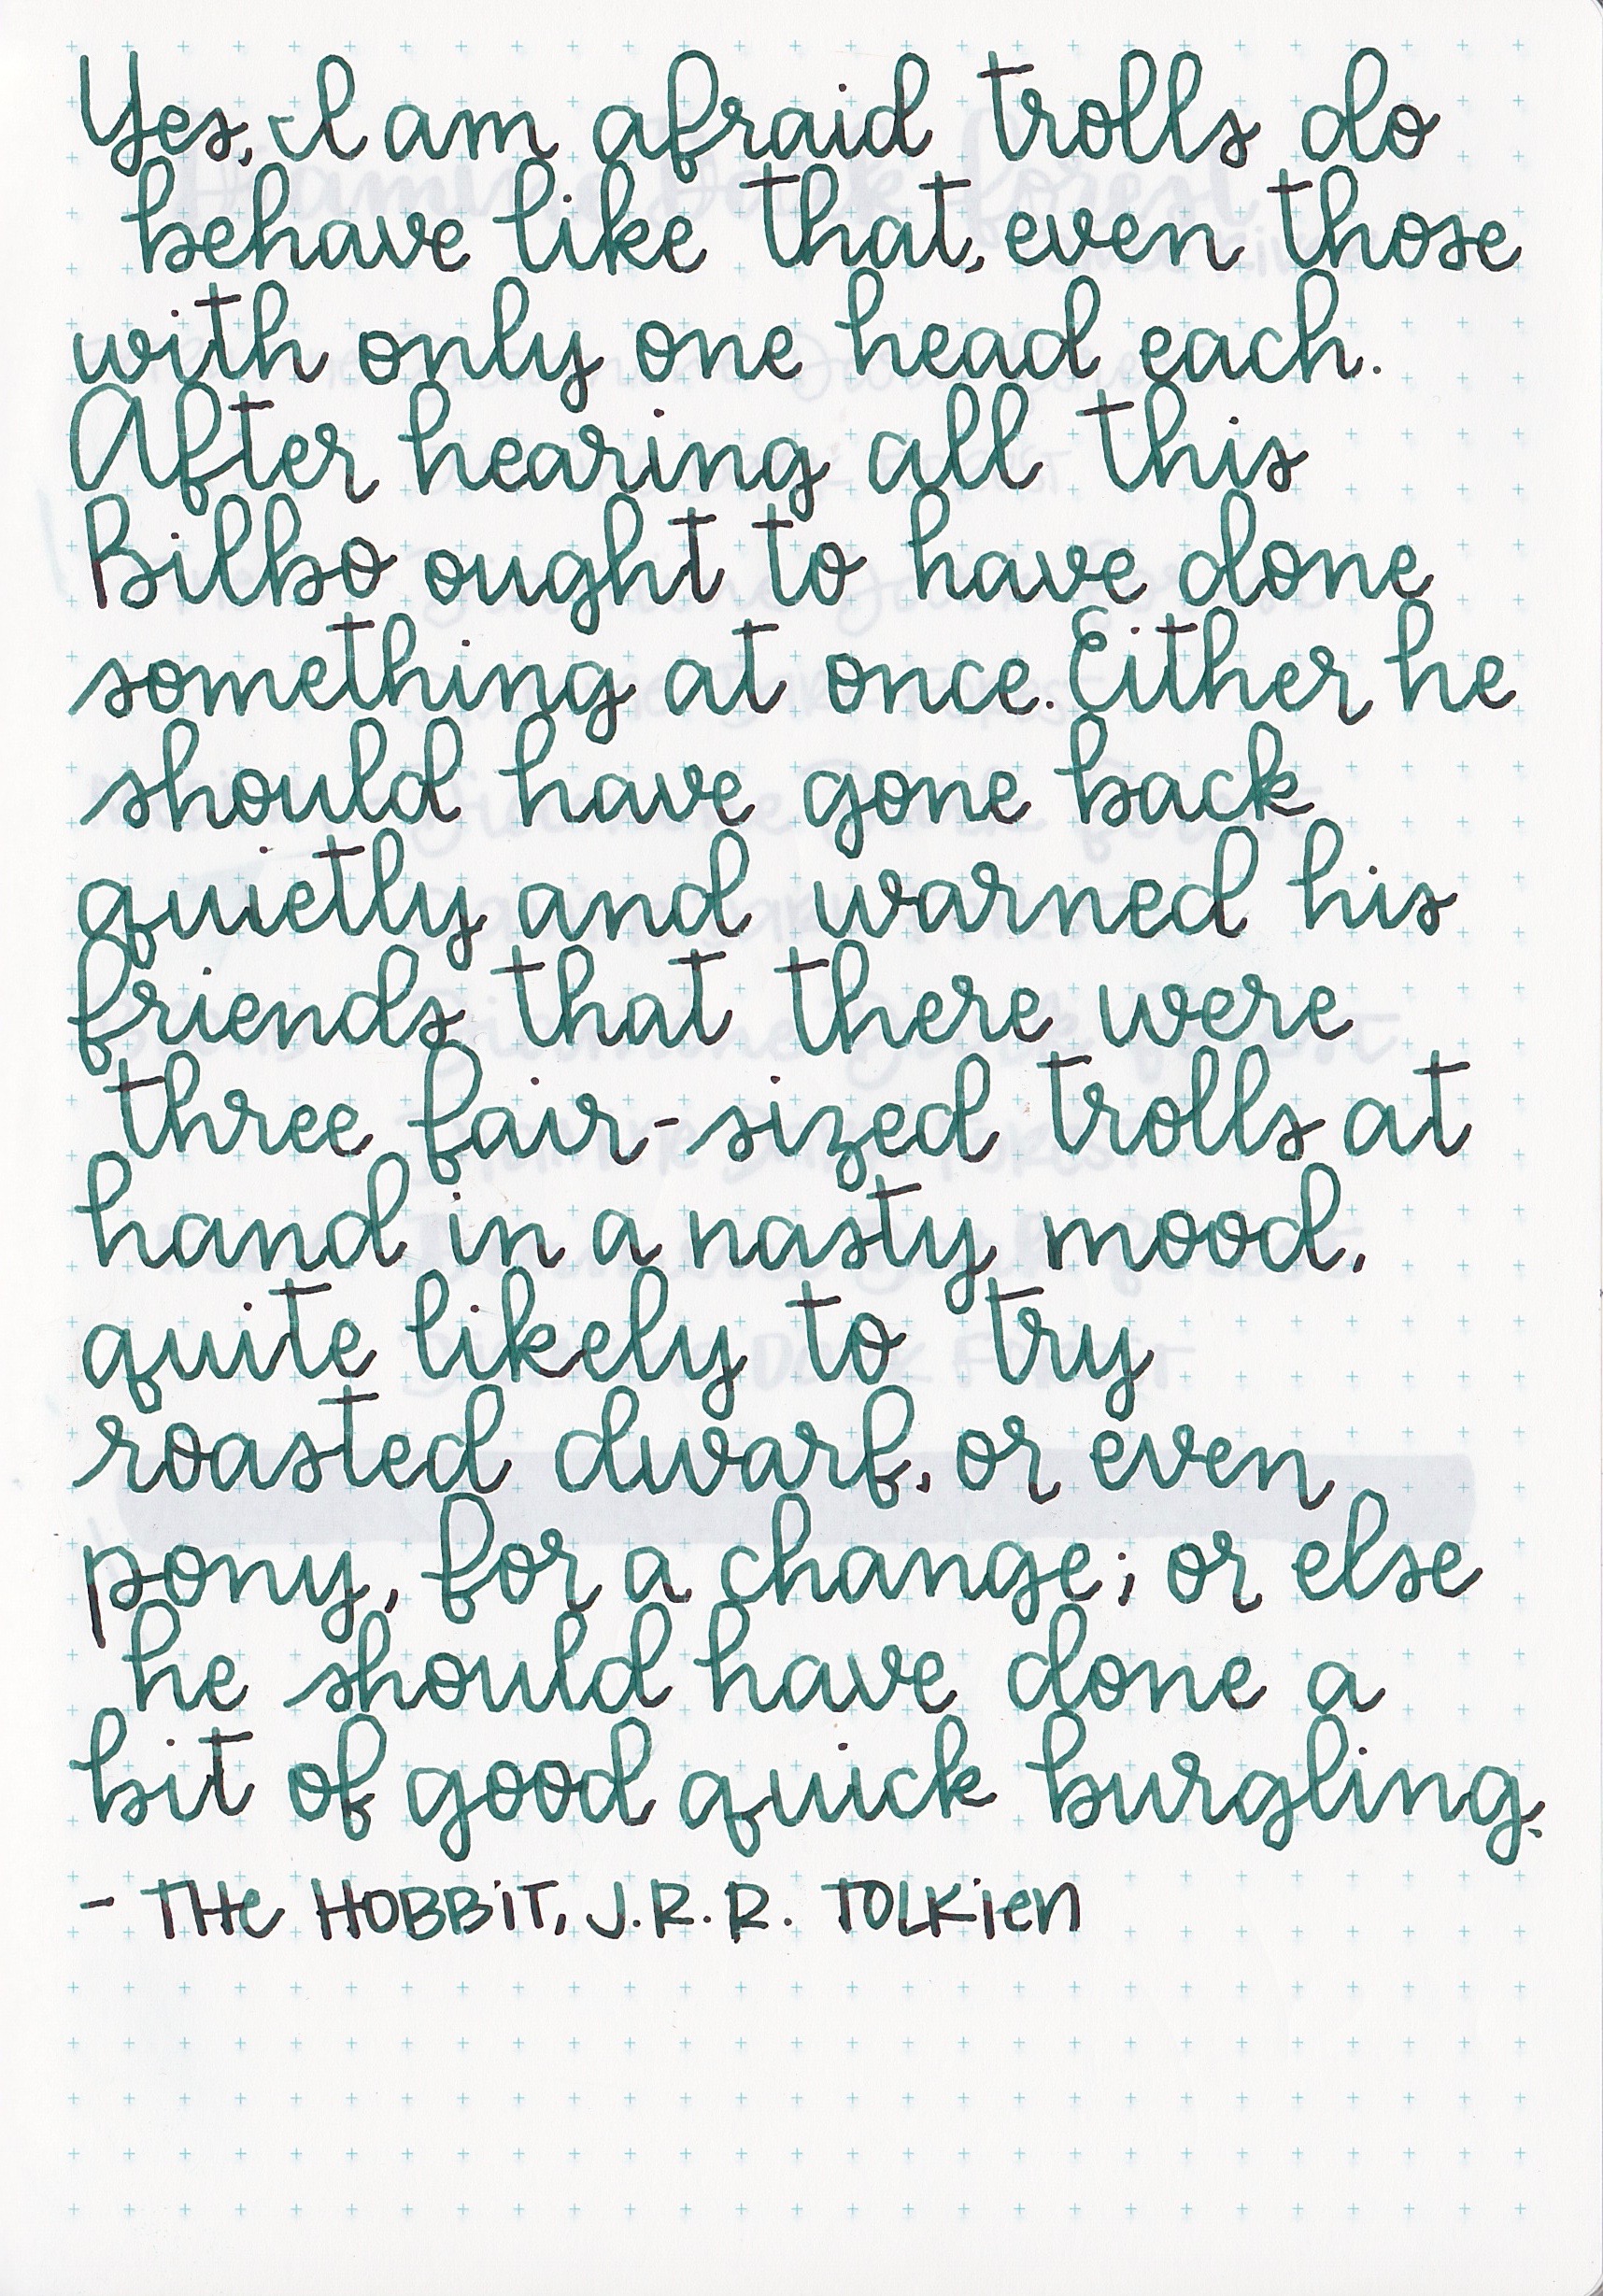 Yes, I am afraid trolls do
behave like that, even those
with only one head each.
After hearing all this
Bilbo ought to have done
something at once. Either he
should have gone back
quietly and warned his
friends that there were
three fair-sized trolls at
hand in a nasty mood,
quite likely to try
roasted dwarf, or even
pony, for a change; or else
he should have done a
bit of good quick burgling.
- THE HOBBIT, J.R.R. TOLKIEN